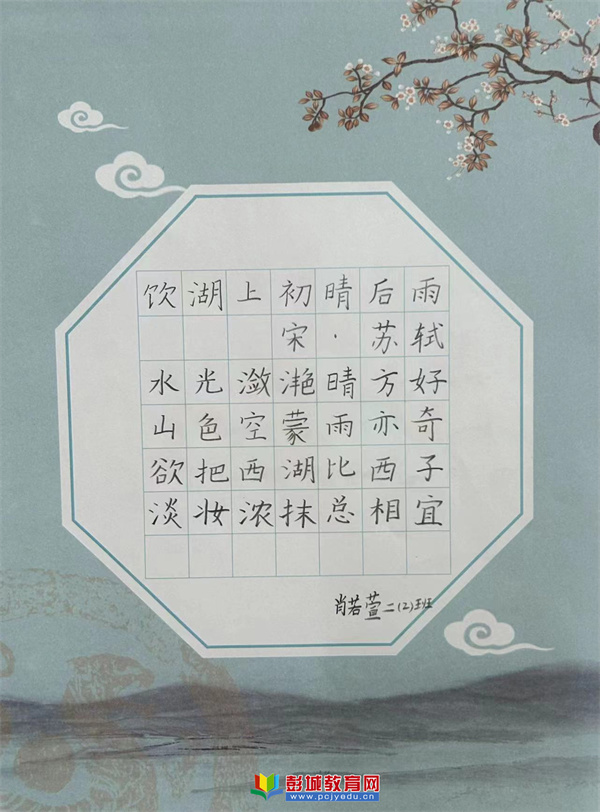 饮湖上初晴后雨
宋·苏轼
水光潋滟晴方好
山色空蒙雨亦奇
欲把西湖比西子
淡妆浓抹总相宜
肖若萱二(2)班
彭城教育网
www.pcjyedu.cn